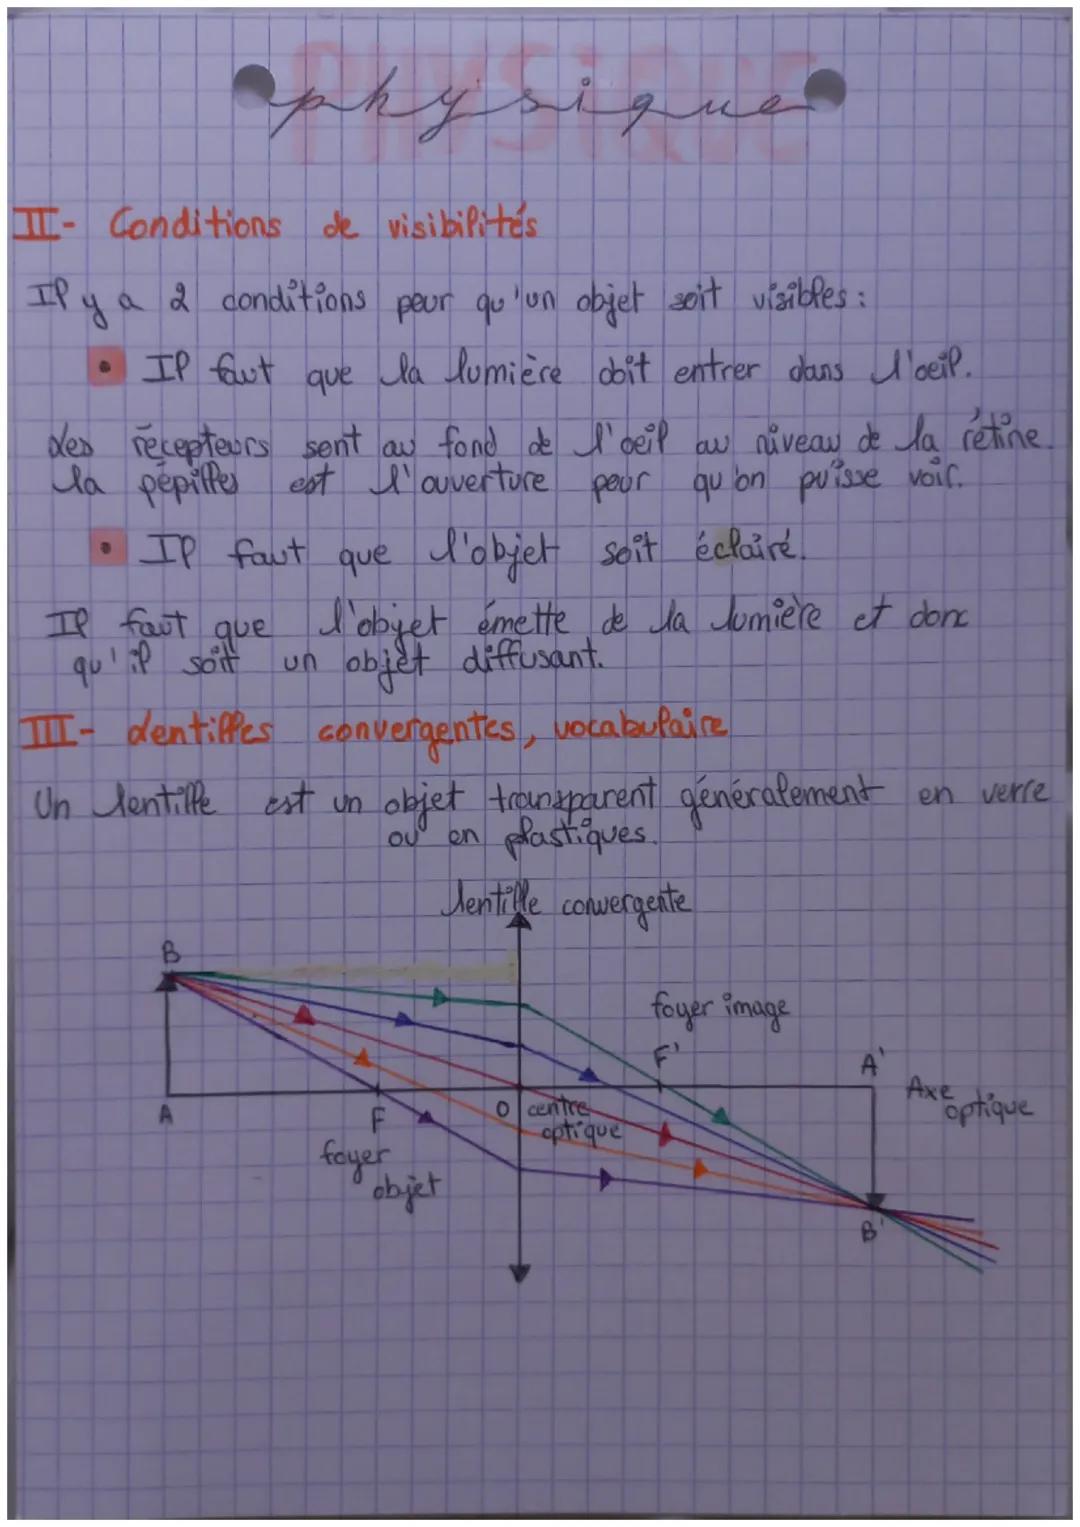 PHYSIQUE
physique
II- Conditions de visibilités
Il y a 2 conditions pour qu'un objet soit visibles :
• Il faut que la lumière doit entrer dans l'oeil.
Les récepteurs sont au fond de l'oeil au niveau de la rétine.
la pépilles est l'ouverture pour qu'on puisse voir.
• Il faut que l'objet soit éclairé.
Il faut que l'objet émette de la lumière et donc
qu'il soit un objet diffusant.
III- Lentilles convergentes, vocabulaire
Un lentille est un objet transparent généralement en verre
ou en plastiques.
lentille convergente
B
foyer image
F'
A'
Axe optique
A
F
O
centre optique
foyer objet
B'